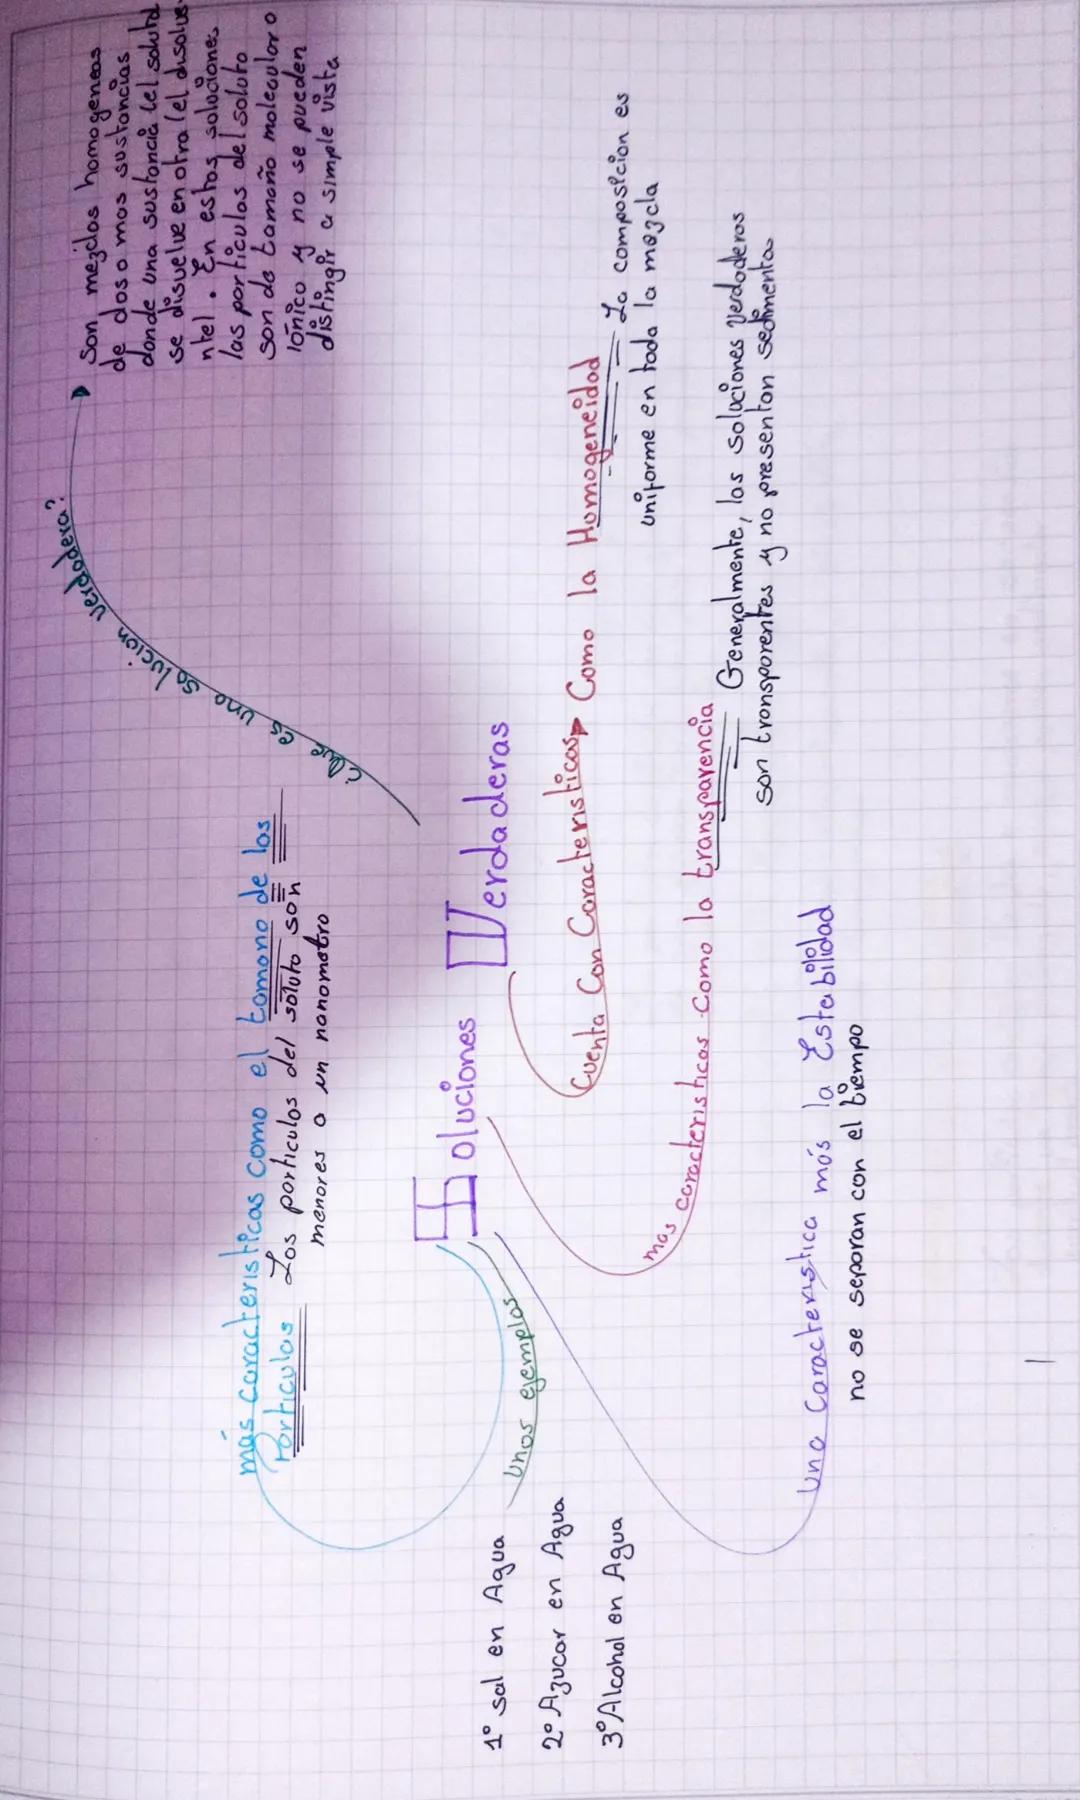 ¿Que es una solucion verdadera?
Son mezclas homogeneas
de dos o mas sustancias
donde una sustancia (el soluto)
se disuelve en otra (el disolve-
nte). En estas soluciones
las particulas del soluto
son de tamaño molecular o
iónico y no se pueden
distingir a simple vista
más caracteristicas como el tamano de las
Particulas Las particulas del soluto son
menores a un nanometro
Soluciones Verdaderas
Cuenta Con Caracteristicas Como la Homogeneidad
La composicion es
uniforme en toda la mezcla
mas caracteristicas Como la transparencia
Generalmente, las soluciones verdaderas
son transparentes y no presentan sedimenta
Una Caracteristica más la Estabilidad
no se separan con el tiempo
Unos ejemplos
1° sal en Agua
2° Azucar en Agua
3° Alcohol en Agua